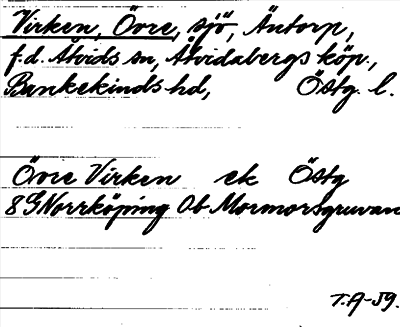 Virken, Övre, sjö, Äntorp,
f.d. Åtvids sn, Åtvidabergs köp.,
Bankekinds hd, Östg. l.
Övre Virken ek Östg
8G Norrköping 0b Mormorsgruvan
T.A-59.